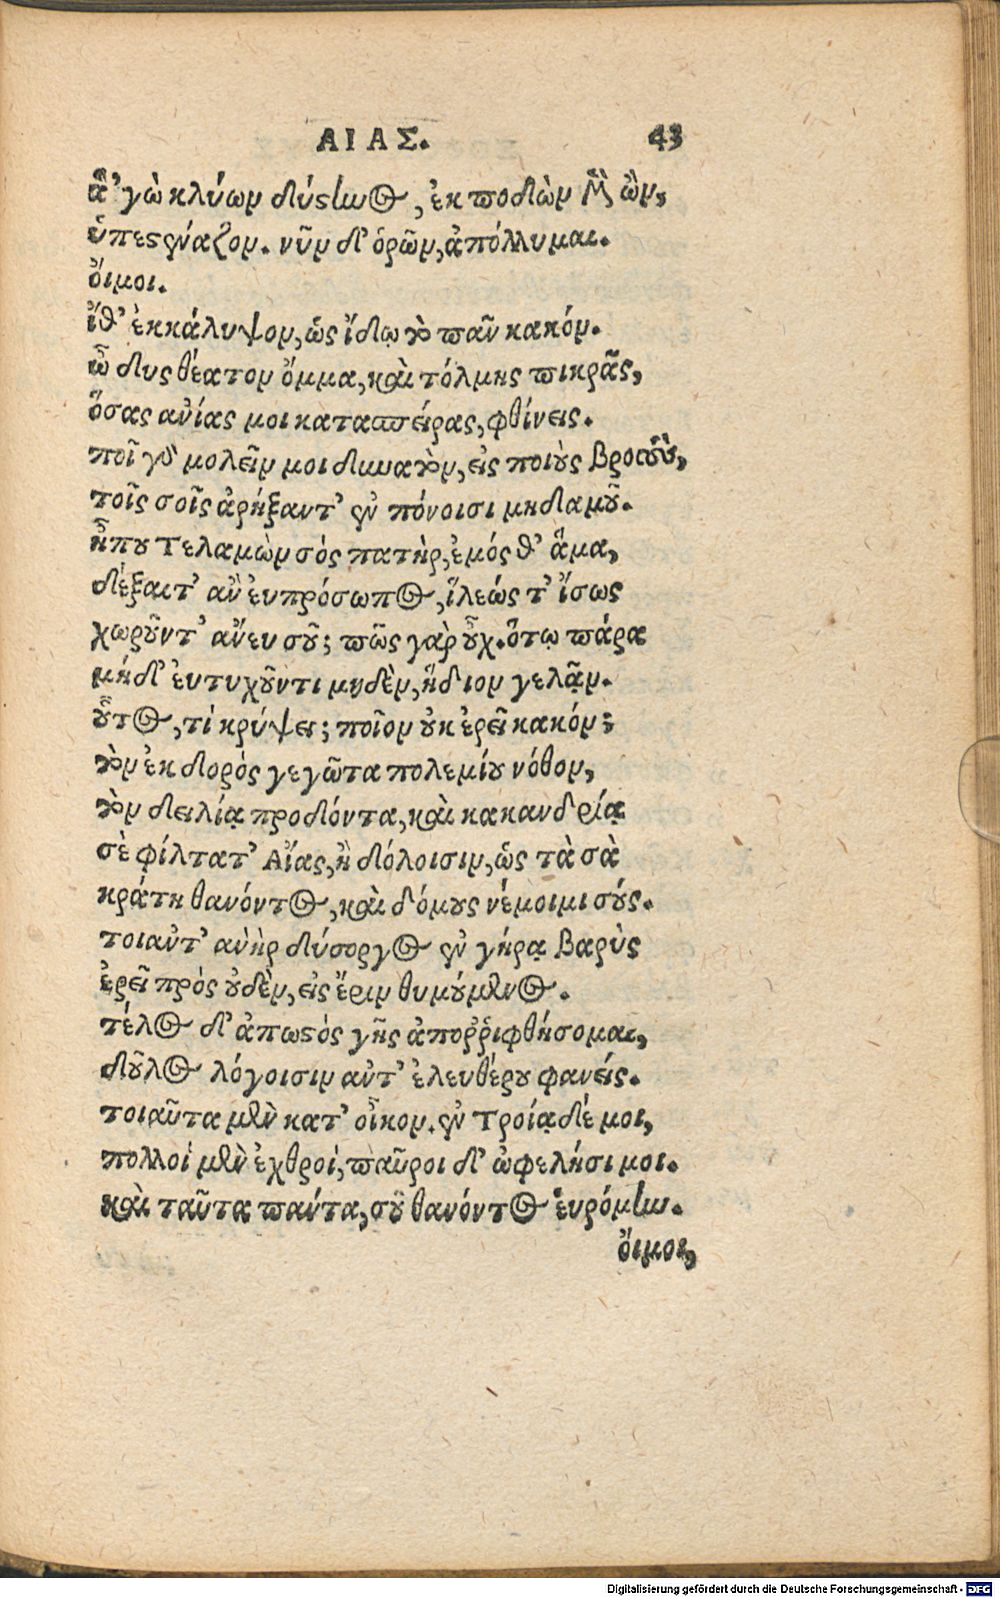 ΑΙΑΣ. 43
ἃ 'γὼ κλύων δύστηνος, ἐκ ποδὼν μὲν ὢν,
ὑπεστέναζον. νῦν δ' ὁρῶν, ἀπόλλυμαι.
ὄιμοι.
ἴθ' ἐκκάλυψον, ὡς ἴδω τὸ πᾶν κακόν.
ὦ δυσθέατον ὄμμα, καὶ τόλμης πικρᾶς,
ὅσας ἀνίας μοι κατασπείρας, φθίνεις.
ποῖ γὸ μολεῖν μοι δυνατὸν, εἰς ποιοὺς βροτοὺς,
τοῖς σοῖς ἀρήξαντ' ἐν πόνοισι μηδαμοῦ.
ἦπου Τελαμὼν σὸς πατὴρ, ἐμός θ' ἅμα,
δέξαιτ' ἂν ἐυπρόσωπος, ἵλεώς τ' ἴσως
χωροῦντ' ἄνευ σοῦ; πῶς γὰρ οὖχ. ὅτῳ πάρα
μήδ' ἐυτυχοῦντι μηδὲν, ἥδιον γελᾷν.
οὗτος, τί κρύψει; ποῖον οὐκ ἐρεῖ κακόν;
τὸν ἐκ δορὸς γεγῶτα πολεμίου νόθον,
τὸν δειλίᾳ προδόντα, καὶ κακανδρίᾳ
σὲ φίλτατ' Αἴας, ἢ δόλοισιν, ὡς τὰ σὰ
κράτη θανόντος, καὶ δόμους νέμοιμι σούς.
τοιαῦτ' ἀνὴρ δύσοργος ἐν γήρᾳ βαρὺς
ἐρεῖ πρὸς οὐδὲν, εἰς ἔριν θυμούμενος.
τέλος δ' ἀπωστὸς γῆς ἀποῤῥιφθήσομαι,
δοῦλος λόγοισιν ἀντ' ἐλευθέρου φανείς.
τοιαῦτα μὲν κατ' οἶκον. ἐν Τροίᾳ δέ μοι,
πολλοὶ μὲν ἐχθροὶ, παῦροι δ' ὠφελήσιμοι.
καὶ ταῦτα πάντα, σοῦ θανόντος ἑυρόμην.
ὄιμοι,
Digitalisierung gefördert durch die Deutsche Forschungsgemeinschaft - DFG